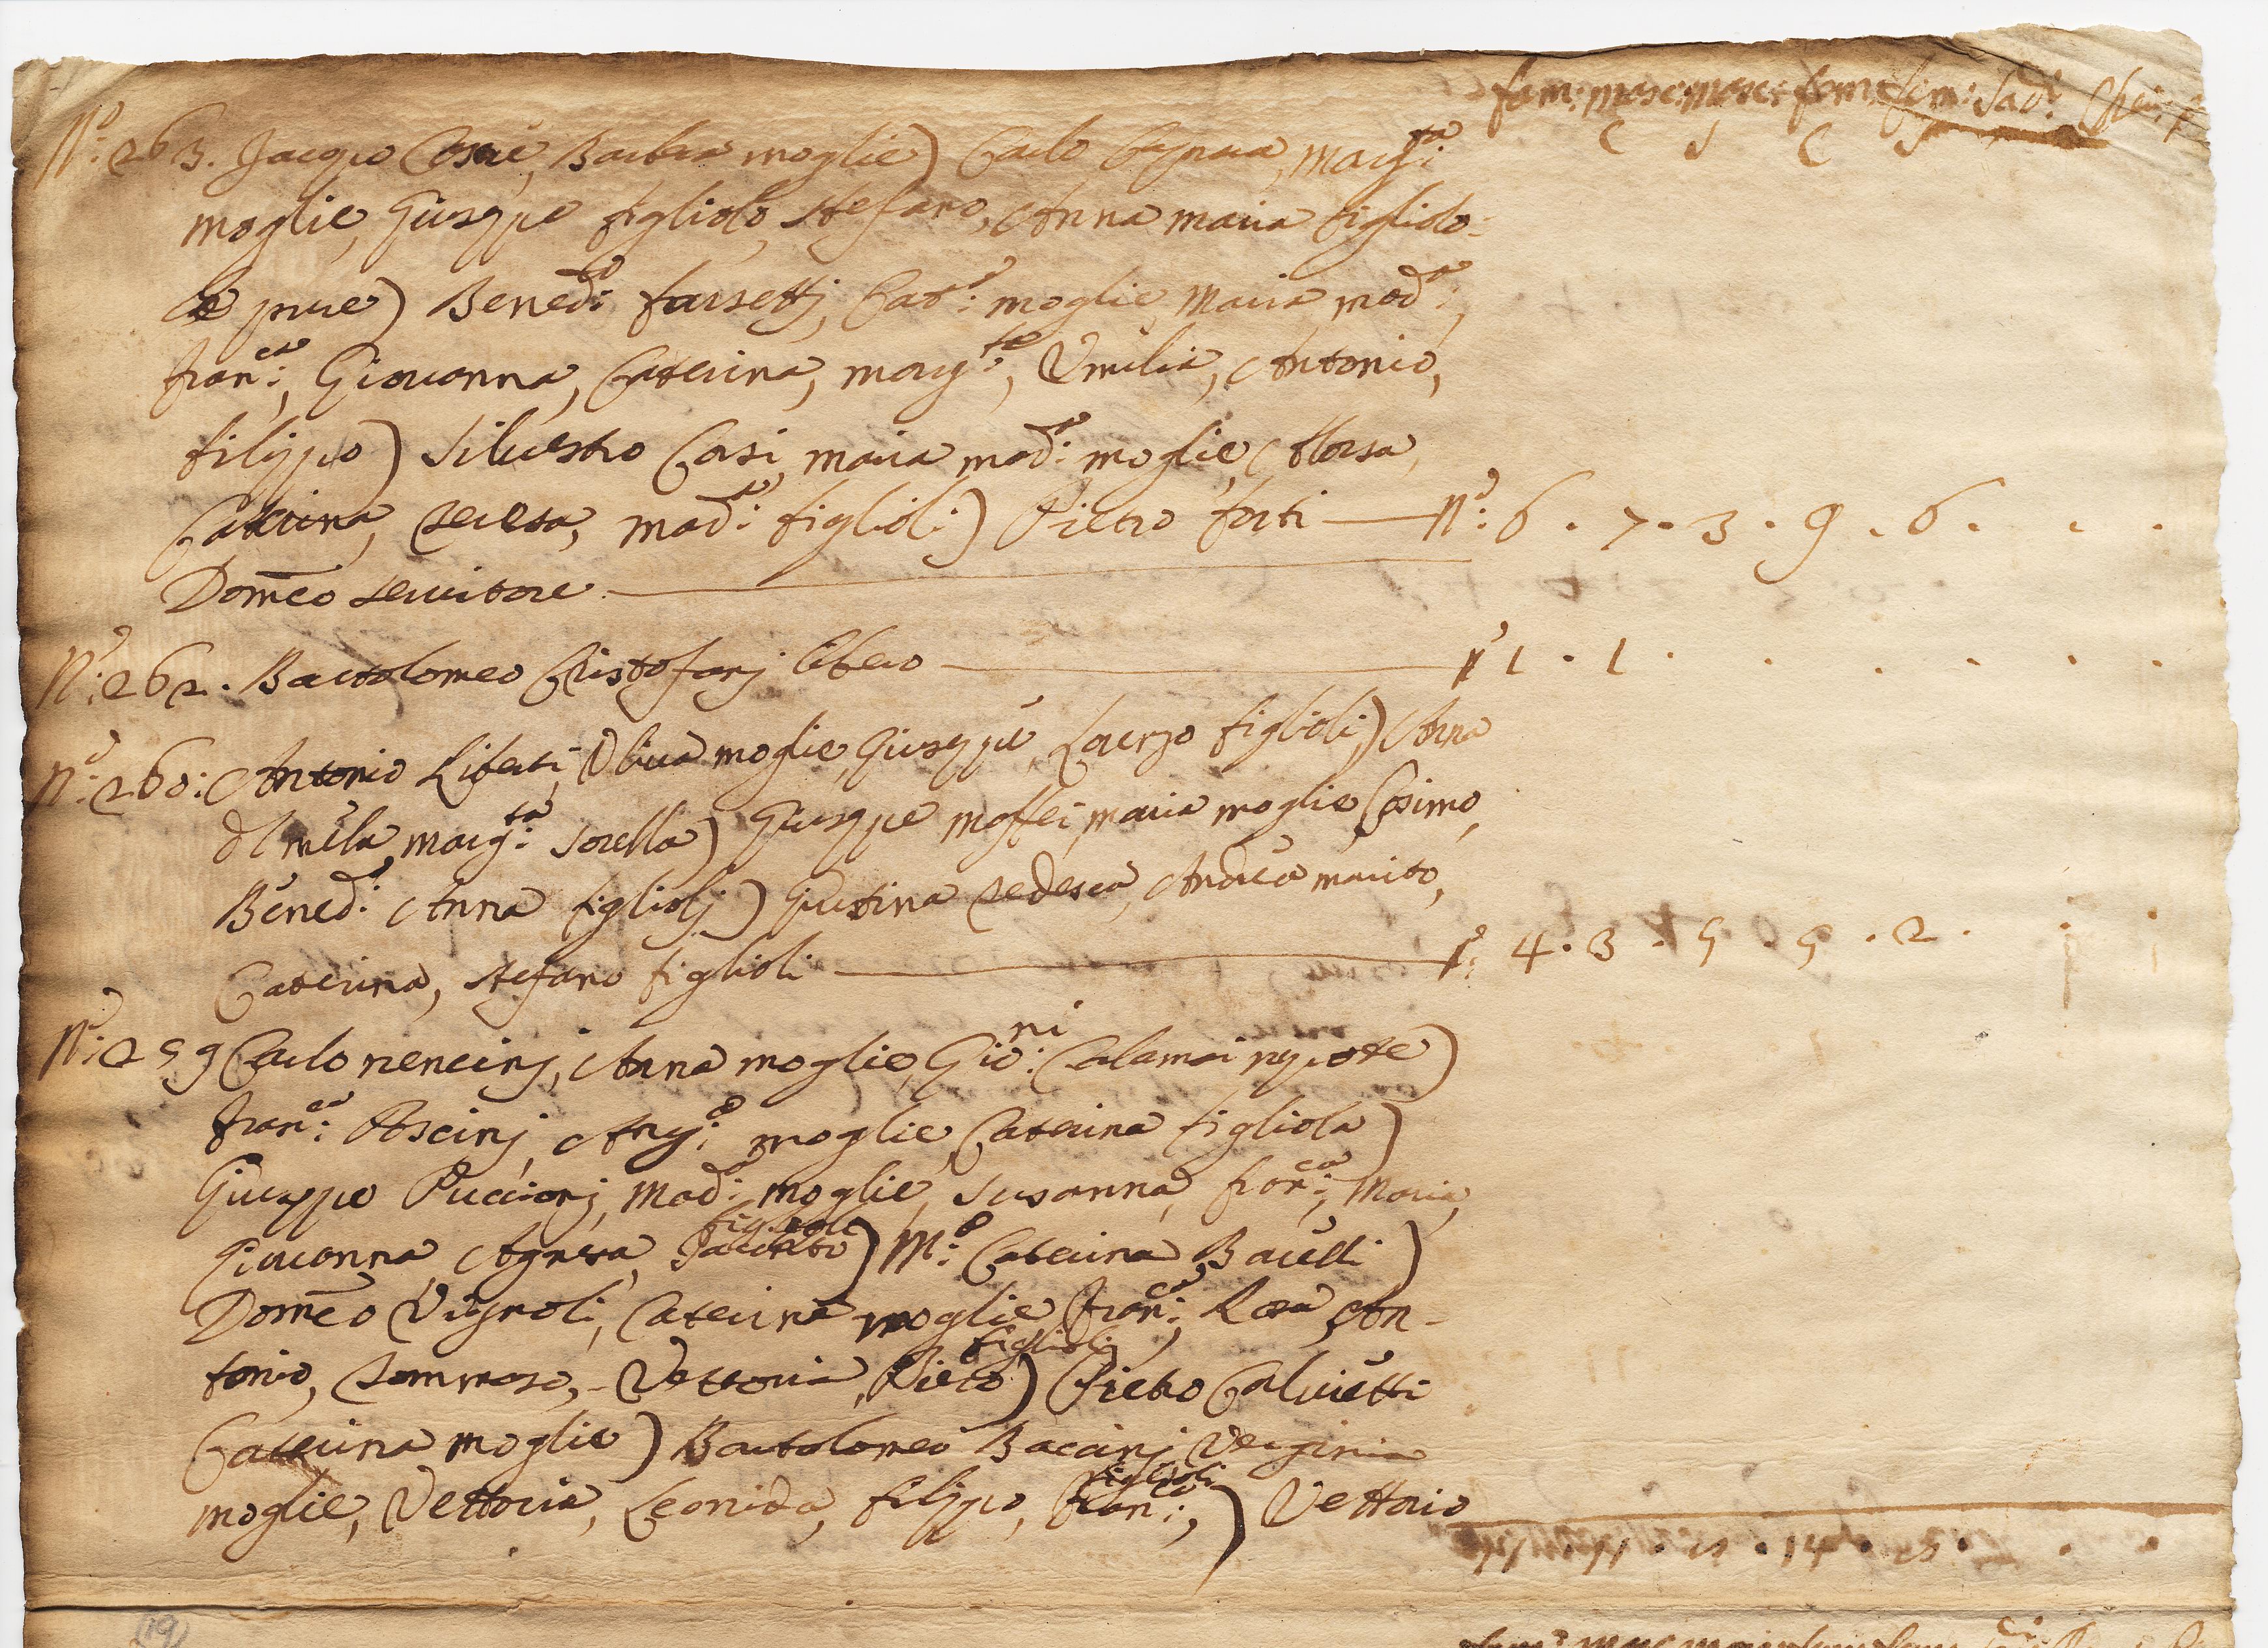 fam: masc: masc: fem: fem: Sad:
C S C S
N.o 263. Jacopo Barbera moglie) Carlo Marg:ta
moglie, Giuseppe figliolo, Stefano, Anna maria figliolo-
pure) Bened:o farsettj, Cat:a moglie, Maria mad:a,
fran:ca, Giouanna, Caterina, marg:ta, Vmilia, Antonio,
filippo) Siluestro Casi, maria mad:a moglie,
Caterina, Teresa, mad:a figlioli) Pietro forti — N.o 6 . 7 . 3 . 9 . 6 . . .
Domeco seruitore —
N.o 262. Bartolomeo Cristofanj libero — N.o 1 . 1 . . . . . .
N.o 260: Antonio Liberti, Oliua moglie, Giuseppe, Lorenzo figlioli) Anna
marg:ta sorella) Giuseppe maffei, maria moglie, Cosimo,
Bened:o Anna figliolj) Giustina Tedesca, Andrea marito,
Caterina, Stefano figlioli — N.o 4 . 3 . 5 . 5 . 2 . . .
N.o 259 Carlo nencinj, Anna moglie, Gio:ni Calamai nepote)
fran:co Ang:a moglie, Caterina figliola)
Giuseppe Puccionj, Mad:a moglie, Susanna, fran:ca, Maria,
Giouanna, Agnesa, figlioli) M:a Caterina)
Domeco Vignoli, Caterina moglie, fran:co, Rosa, An-
tonio, Tommaso, Vettoria, Pietro figlioli) Pietro Caluetti
Caterina moglie) Bartolomeo Baccinj, Verginia
moglie, Vettoria, Leonida, filippo, fran:co, figlioli) Vettorio
11 . 11 . . 14 . . .
(19)